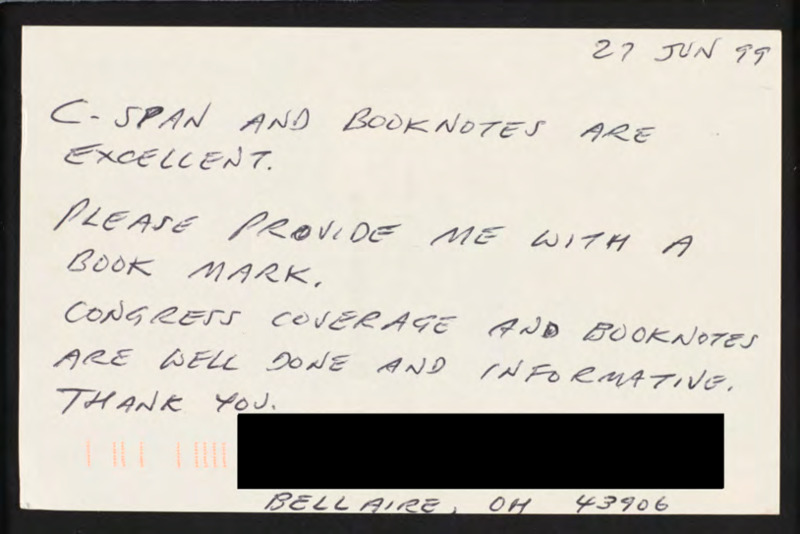 27 JUN 99
C-SPAN AND BOOKNOTES ARE
EXCELLENT.
PLEASE PROVIDE ME WITH A
BOOK MARK.
CONGRESS COVERAGE AND BOOKNOTES
ARE WELL DONE AND INFORMATIVE.
THANK YOU.
BELLAIRE, OH 43906